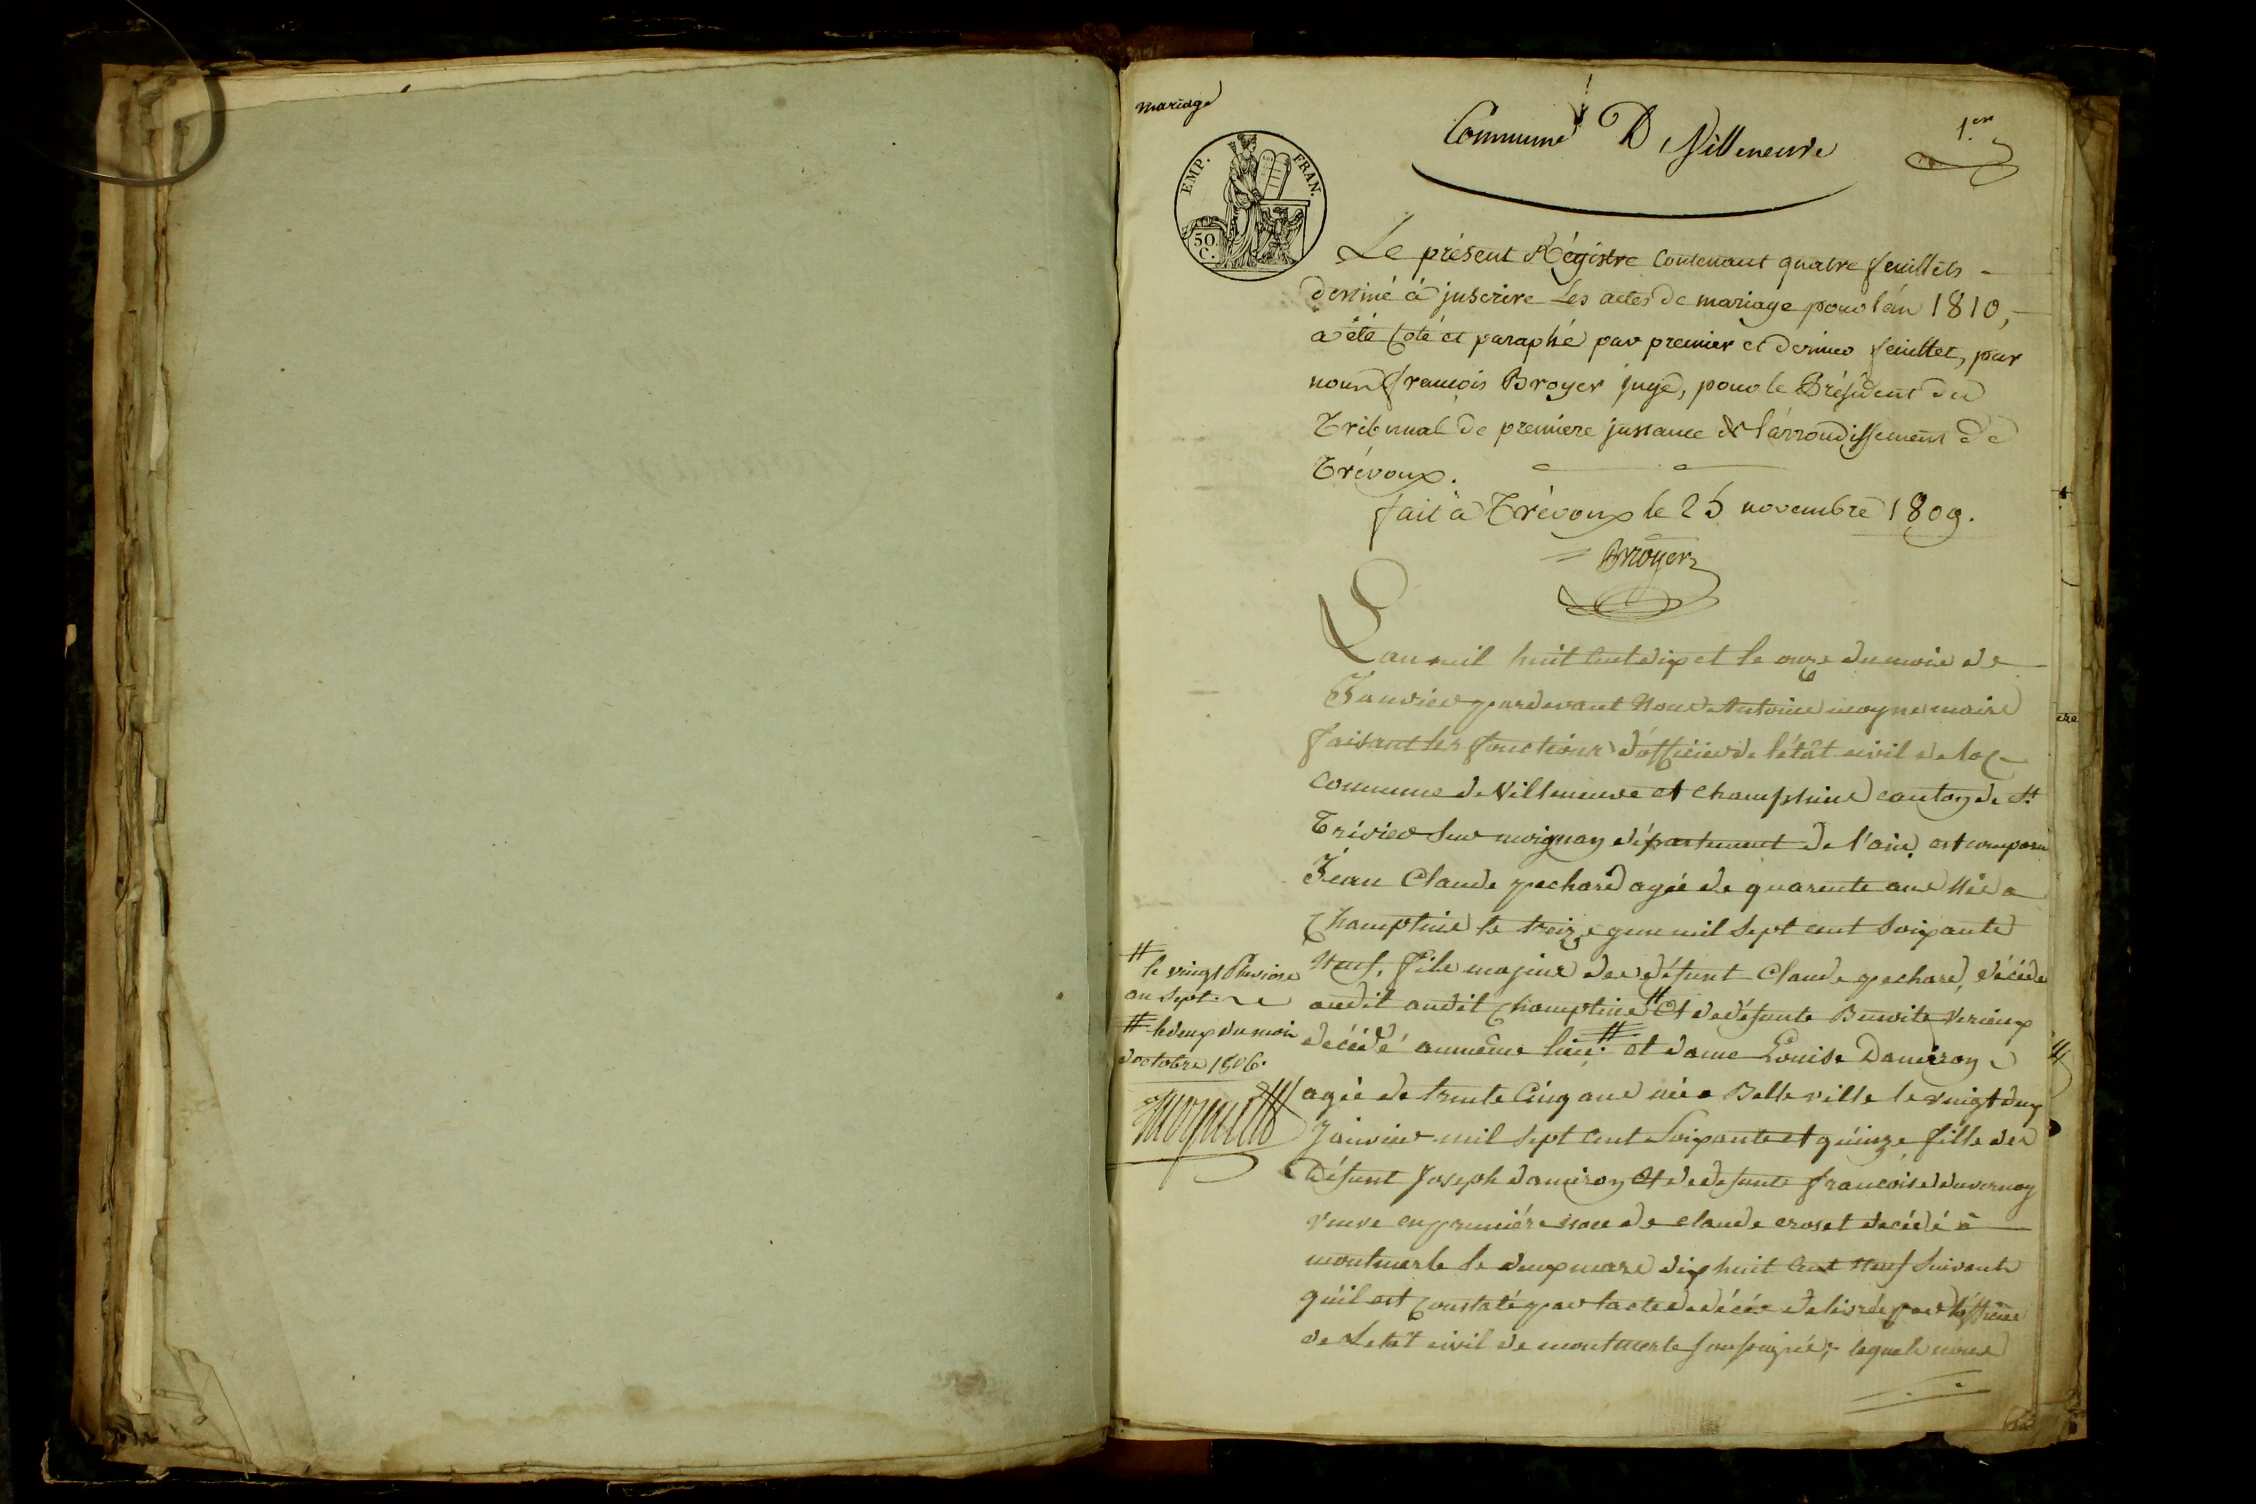 mariage
Commune De Villeneuve
1.er
EMP. FRAN.
50 C.
Le présent Régistre contenant quatre feuillets
destiné à juscrire les actes de mariage pour l'án 1810,
a été coté et paraphé par premier et dernier feuillet, par
nous françois Broyer juge, pour le Président du
Tribunal de premiere justance de l'árrondissement de
Trévoux.
fait à Trévoux le 25 novembre 1809.
Broyer
L'an mil huit cent dix et le onze du mois de
Janvier pardevant Nous Antoine moyne maire
faisant les fonctions d'officier de l'étât civil de la
commune de Villeneuve et champtein canton de St
Trivier sur moignan département de l'ain est comparu
Jean Claude pechard agée de quarente ans Née a
Champtein le treize juin mil sept cent soixante
Neuf, fils majeur de défunt Claude pechard, décédé
audit audit Champtein # Et de défunte Benoite Verieux
décédé aumême lieu # et dame Louise Damiron
agée de trente cinq ans née a Belleville le vingt deux
Janvier mil sept cent soixante et quinze fille de
Défunt Joseph damiron Et de defunte françoise duvernay
veuve en premiére noce de claude croset décédé à
montmerle le deux mars dix huit cent Neuf suivant
quil est constaté par lacte de décés délivrée par l'officier
de Letat civil de montmerle soussigné; lequels nous
# le vingt Pluviose
an sept.
# le deux du mois
doctobre 1806.